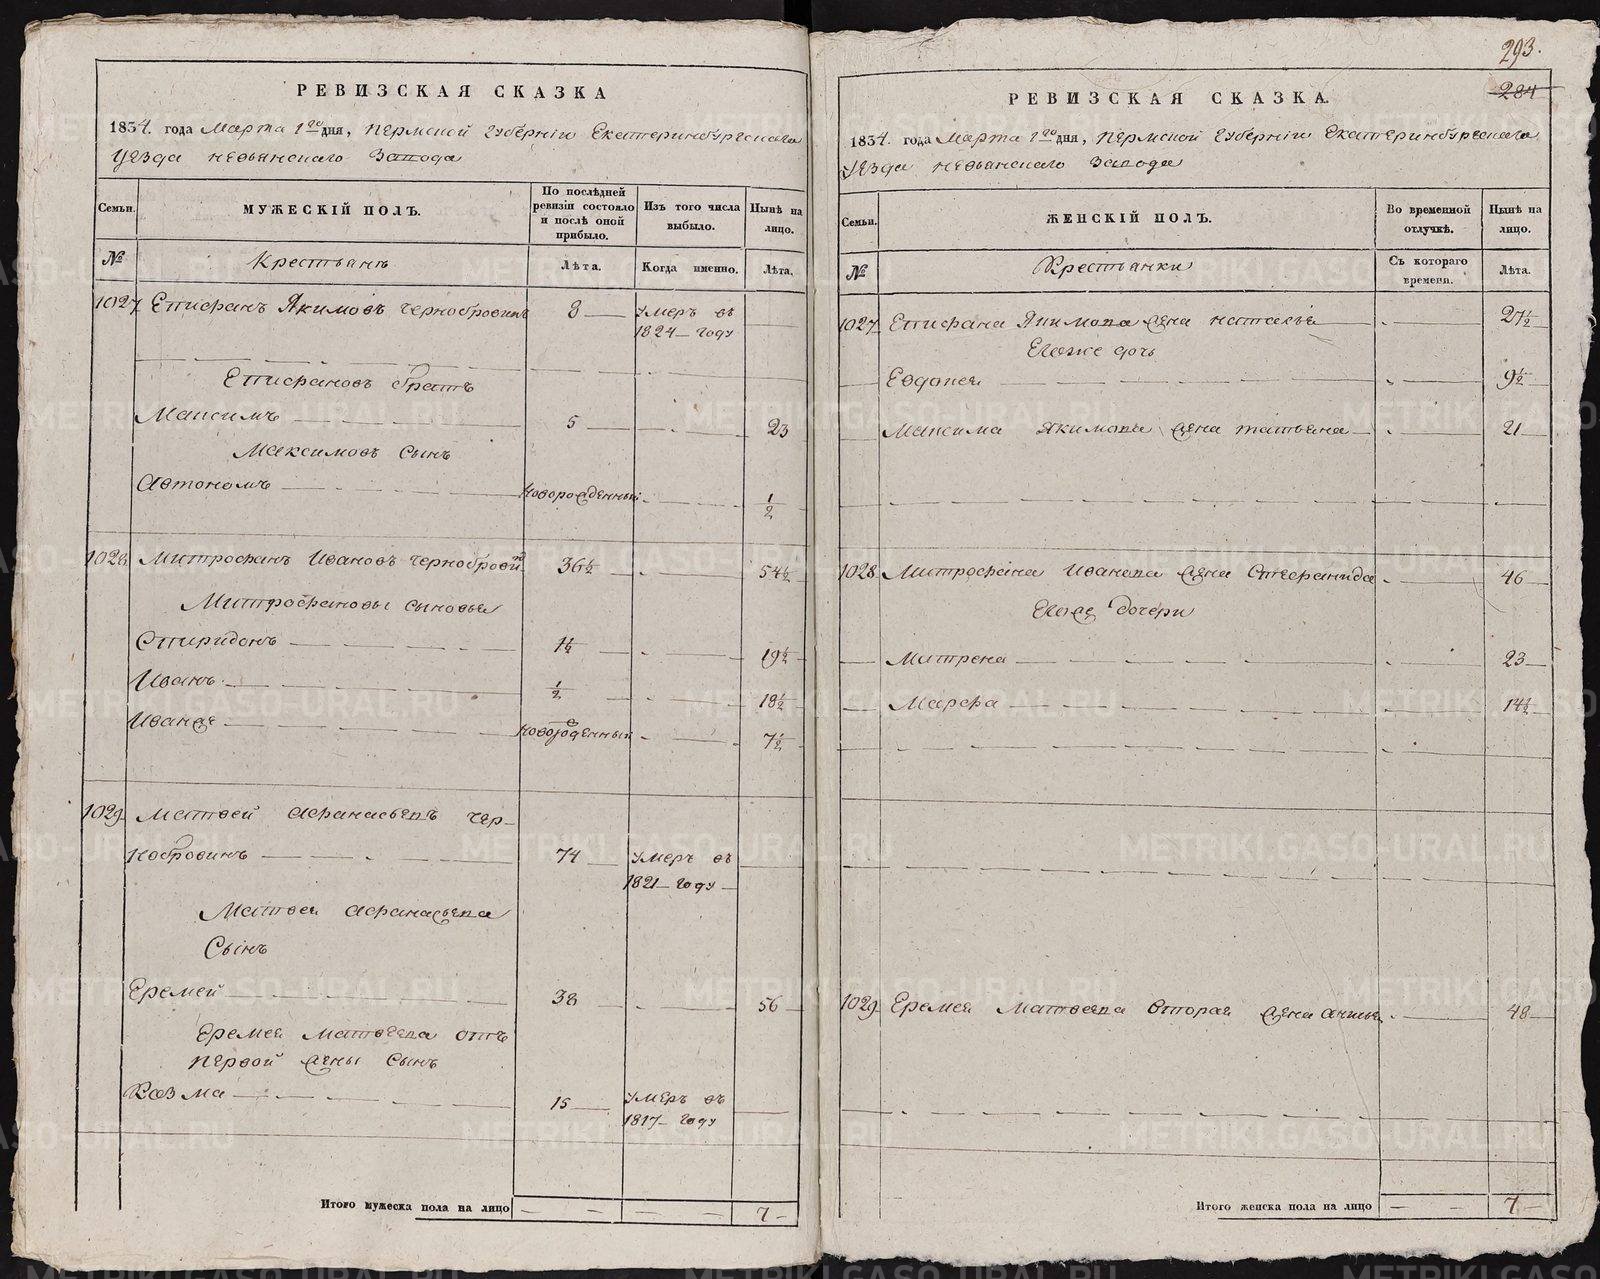 РЕВИЗСКАЯ СКАЗКА
1834. года Марта 1го дня, Пермской Губернiи Екатеринбургскаго
Уезда Невьянскаго Завода
Семьи.
МУЖЕСКIЙ ПОЛЪ.
По послѣдней ревизiи состояло и послѣ оной прибыло.
Изъ того числа выбыло.
Нынѣ на лицо.
№
Крестьянъ
Лѣта.
Когда именно.
Лѣта.
1027 Епифанъ Якимовъ Чернобровинъ 8 умеръ въ
1824 году
Епифановъ братъ
Максимъ 5 23
Максимовъ сынъ
Автономъ новорожденный 1/2
1028 Митрофанъ Ивановъ Чернобровин 36 1/2 54 1/2
Митрофановы сыновья
Спиридонъ 1 1/2 19 1/2
Иванъ 1/2 18 1/2
Иванже новорожденный 7 1/2
1029 Матвей Афанасьевъ Чер-
нобровинъ 74 умеръ въ
1821 году
Матвея Афанасьева
Сынъ
Еремей 38 56
Еремея Матвеева отъ
первой жены сынъ
Козма 15 умеръ въ
1817 году
Итого мужеска пола на лицо 7
293.
284
РЕВИЗСКАЯ СКАЗКА.
1834. года Марта 1го дня, Пермской Губернiи Екатеринбургскаго
Уезда Невьянскаго Завода
Семьи.
ЖЕНСКIЙ ПОЛЪ.
Во временной отлучкѣ.
Нынѣ на лицо.
№
Крестьянки
Съ котораго времени.
Лѣта.
1027 Епифана Якимова жена Наталья 27 1/2
Егоже дочь
Евдокея 9 1/2
Максима Якимова жена татьяна 21
1028 Митрофана Иванова жена Стефанида 46
Егоже дочери
Матрена 23
Марфа 14 1/2
1029 Еремея Матвеева вторая жена 48
Итого женска пола на лицо 7
METRIKI.GASO-URAL.RU